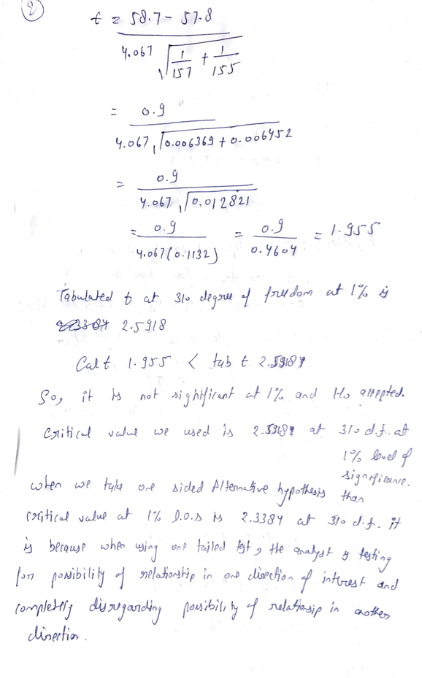 2
t = 58.7 - 57.8
4.067 √ 1/157 + 1/155
= 0.9
4.067 √0.006369 + 0.006452
= 0.9
4.067 √0.012821
= 0.9 = 0.9 = 1.955
4.067(0.1132) 0.4604
Tabulated t at 310 degree of freedom at 1% is
2.5918
Cal t 1.955 < tab t
So, it is not significant at 1% and Ho accepted.
Critical value we used is at 310 d.f. at
1% level of
significance.
when we take one sided Alternative hypothesis than
critical value at 1% l.o.s is 2.3384 at 310 d.f. it
is because when using one tailed test, the analyst is testing
for possibility of relationship in one direction of interest and
completely disregarding possibility of relationship in another
direction.